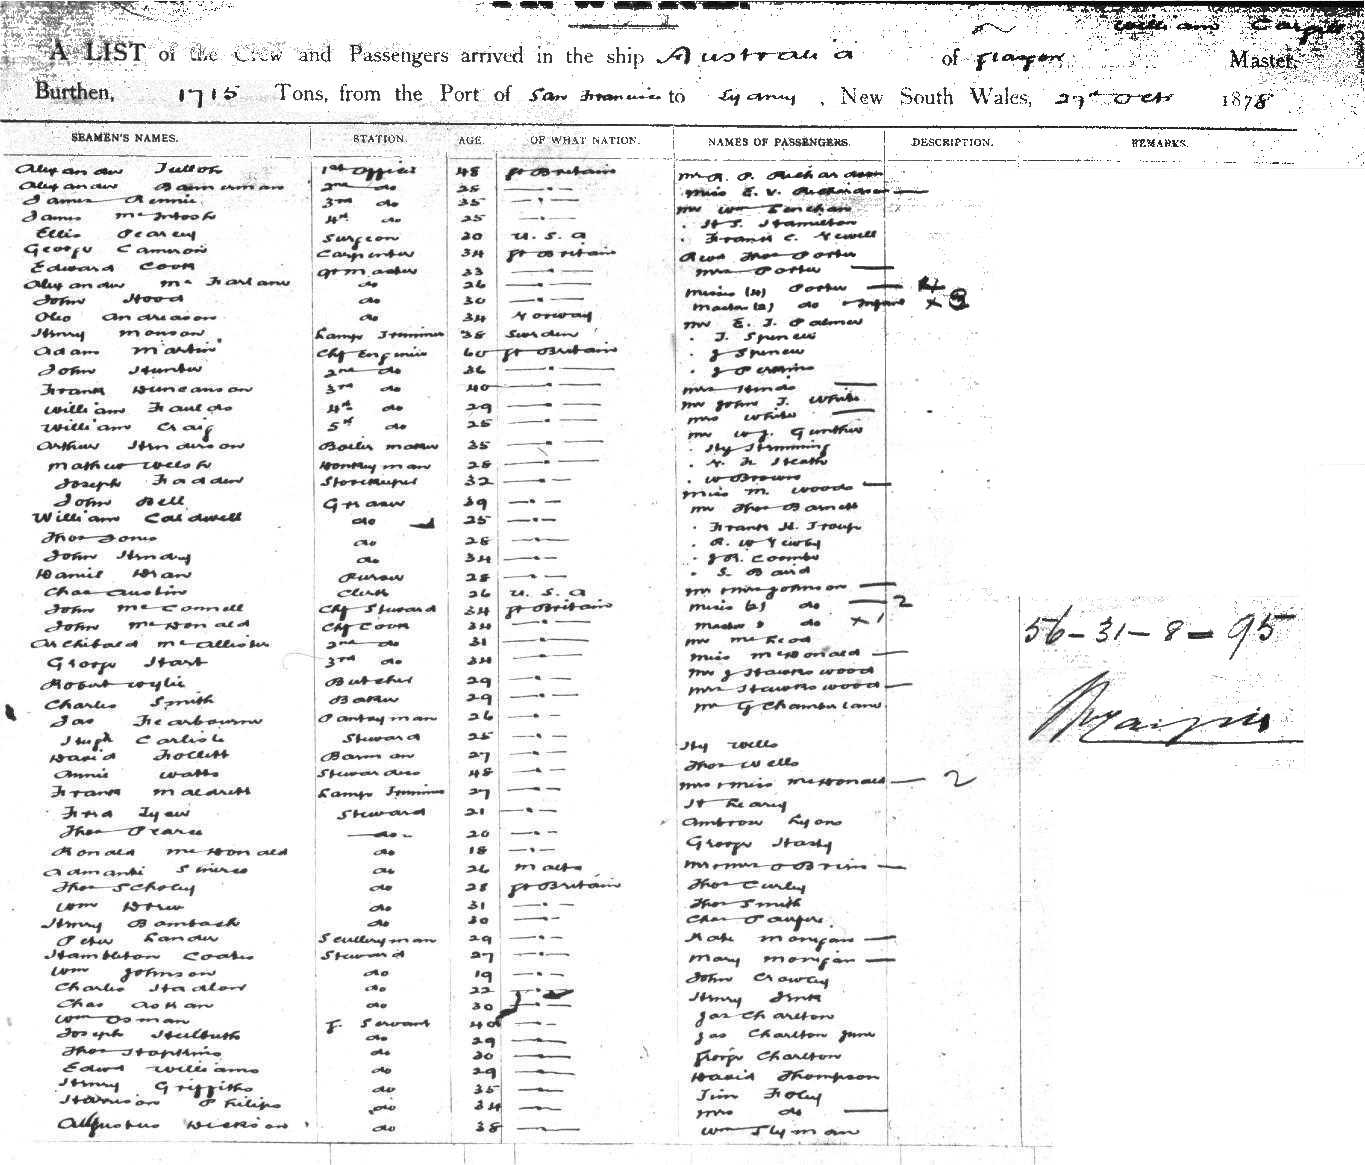 William Cargill
A LIST of the Crew and Passengers arrived in the ship Australia of Glasgow Master,
Burthen, 1715 Tons, from the Port of San Francisco to Sydney, New South Wales, 27th Oct 1878
SEAMEN'S NAMES. STATION. AGE. OF WHAT NATION. NAMES OF PASSENGERS. DESCRIPTION. REMARKS.
Alexander Tulloh 1st Officer 48 Gt Britain Mr R. P. Richardson
Alexander Bannerman 2nd do 25 —"— Miss E. V. Richardson —
James Rennie 3rd do 35 —"— Mr Wm Lenehan
James McIntosh 4th do 25 —"— " H S. Hamilton
Ellis Pearcy Surgeon 30 U. S. A " Frank C. Newell
George Cameron Carpenter 34 Gt Britain Revd Thos Porter
Edward Cook Qr Master 33 —"— Mrs Porter —
Alexander McFarlane do 26 —"— Misses (4) Porter — 4
John Hood do 30 —"— Master (2) do Infant x 3
Oleo Andreason do 34 Norway Mr E. J. Palmer
Henry Monson Lamp Trimmer 38 Sweden " J. Spencer
Adam Martin Chf Engineer 60 Gt Britain " J Spencer
John Hunter 2nd do 36 —"— " J Perkins
Frank Duncanson 3rd do 40 —"— Mrs Hinds —
William Faulds 4th do 29 —"— Mr John J. White
William Craig 5th do 25 —"— Mrs White —
Arthur Henderson Boiler Maker 35 —"— Mr W J. Gunther
Mathew Welsh Donkeyman 28 —"— " Hy Hemming
Joseph Fadden Storekeeper 32 —"— " N. F. Heath
John Bell Greaser 39 —"— " W Brown
William Caldwell do 25 —"— Miss M. Woods —
Thos Jones do 28 —"— Mr Thos Barnett
John Hendry do 34 —"— " Frank H. Troup
Daniel Dran Purser 28 —"— " R. W Newby
Chas Austin Clerk 26 U. S. A " J R. Coombe
John McConnell Chf Steward 34 Gt Britain " S. Baird
John McDonald Chf Cook 34 —"— Mr Mrs Johnson —
Archibald McAllister 2nd do 31 —"— Misses (2) do — 2
George Hart 3rd do 34 —"— Master do x 1
Robert Wylie Butcher 29 —"— Mr McLeod
Charles Smith Baker 29 —"— Miss McDonald —
Jas Fearbourne Pantryman 26 —"— Mr J Hawkswood
Hugh Carlisle Steward 25 —"— Mrs Hawkswood —
David Follett Barman 27 —"— Mr G Chamberlane
Annie Watts Stewardess 48 —"— Hy Wells
Frank Maldrett Lamp Trimmer 27 —"— Thos Wells
Fred Tyew Steward 21 —"— Mrs & Miss McDonald — 2
Thos Pearce do 20 —"— H Leary
Ronald McDonald do 18 —"— Ambrose Lyons
Admanti do 26 Malta George Hasty
Thos Scholey do 28 Gt Britain Mr Mrs O Brien —
Wm Drew do 31 —"— Thos Curley
Henry Bambach do 30 —"— Thos Smith
Peter Lander Scullery man 29 —"— Chas
Hambleton Coates Steward 27 —"— Kate Monigan —
Wm Johnson do 19 —"— Mary Monigan —
Charles Hadlow do 22 —"— John Crowley
Chas Askan do 30 —"— Henry Fink
Wm Osman G. Servant 40 —"— Jas Charlton
Joseph Hulbuth do 29 —"— Jas Charlton Junr
Thos Hopkins do 30 —"— George Charlton
Edwd Williams do 29 —"— David Thompson
Henry Griffiths do 35 —"— Jim Foley
Harrison Philips do 34 —"— Mrs do —
Augustus Dickson do 38 —"— Wm Slyman
56-31-8=95